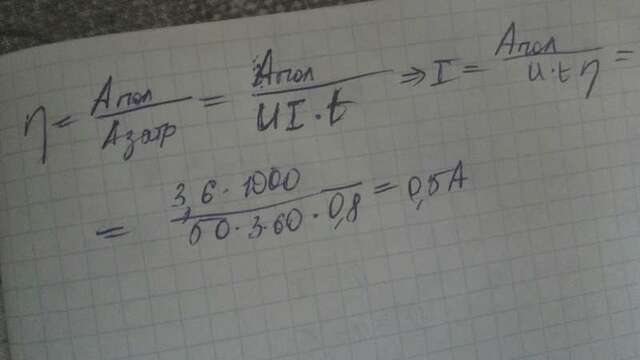 η = Апол / Азатр = Апол / UI·t ⇒ I = Апол / U·t η =
= 3,6·1000 / 50·3·60·0,8 = 0,5А